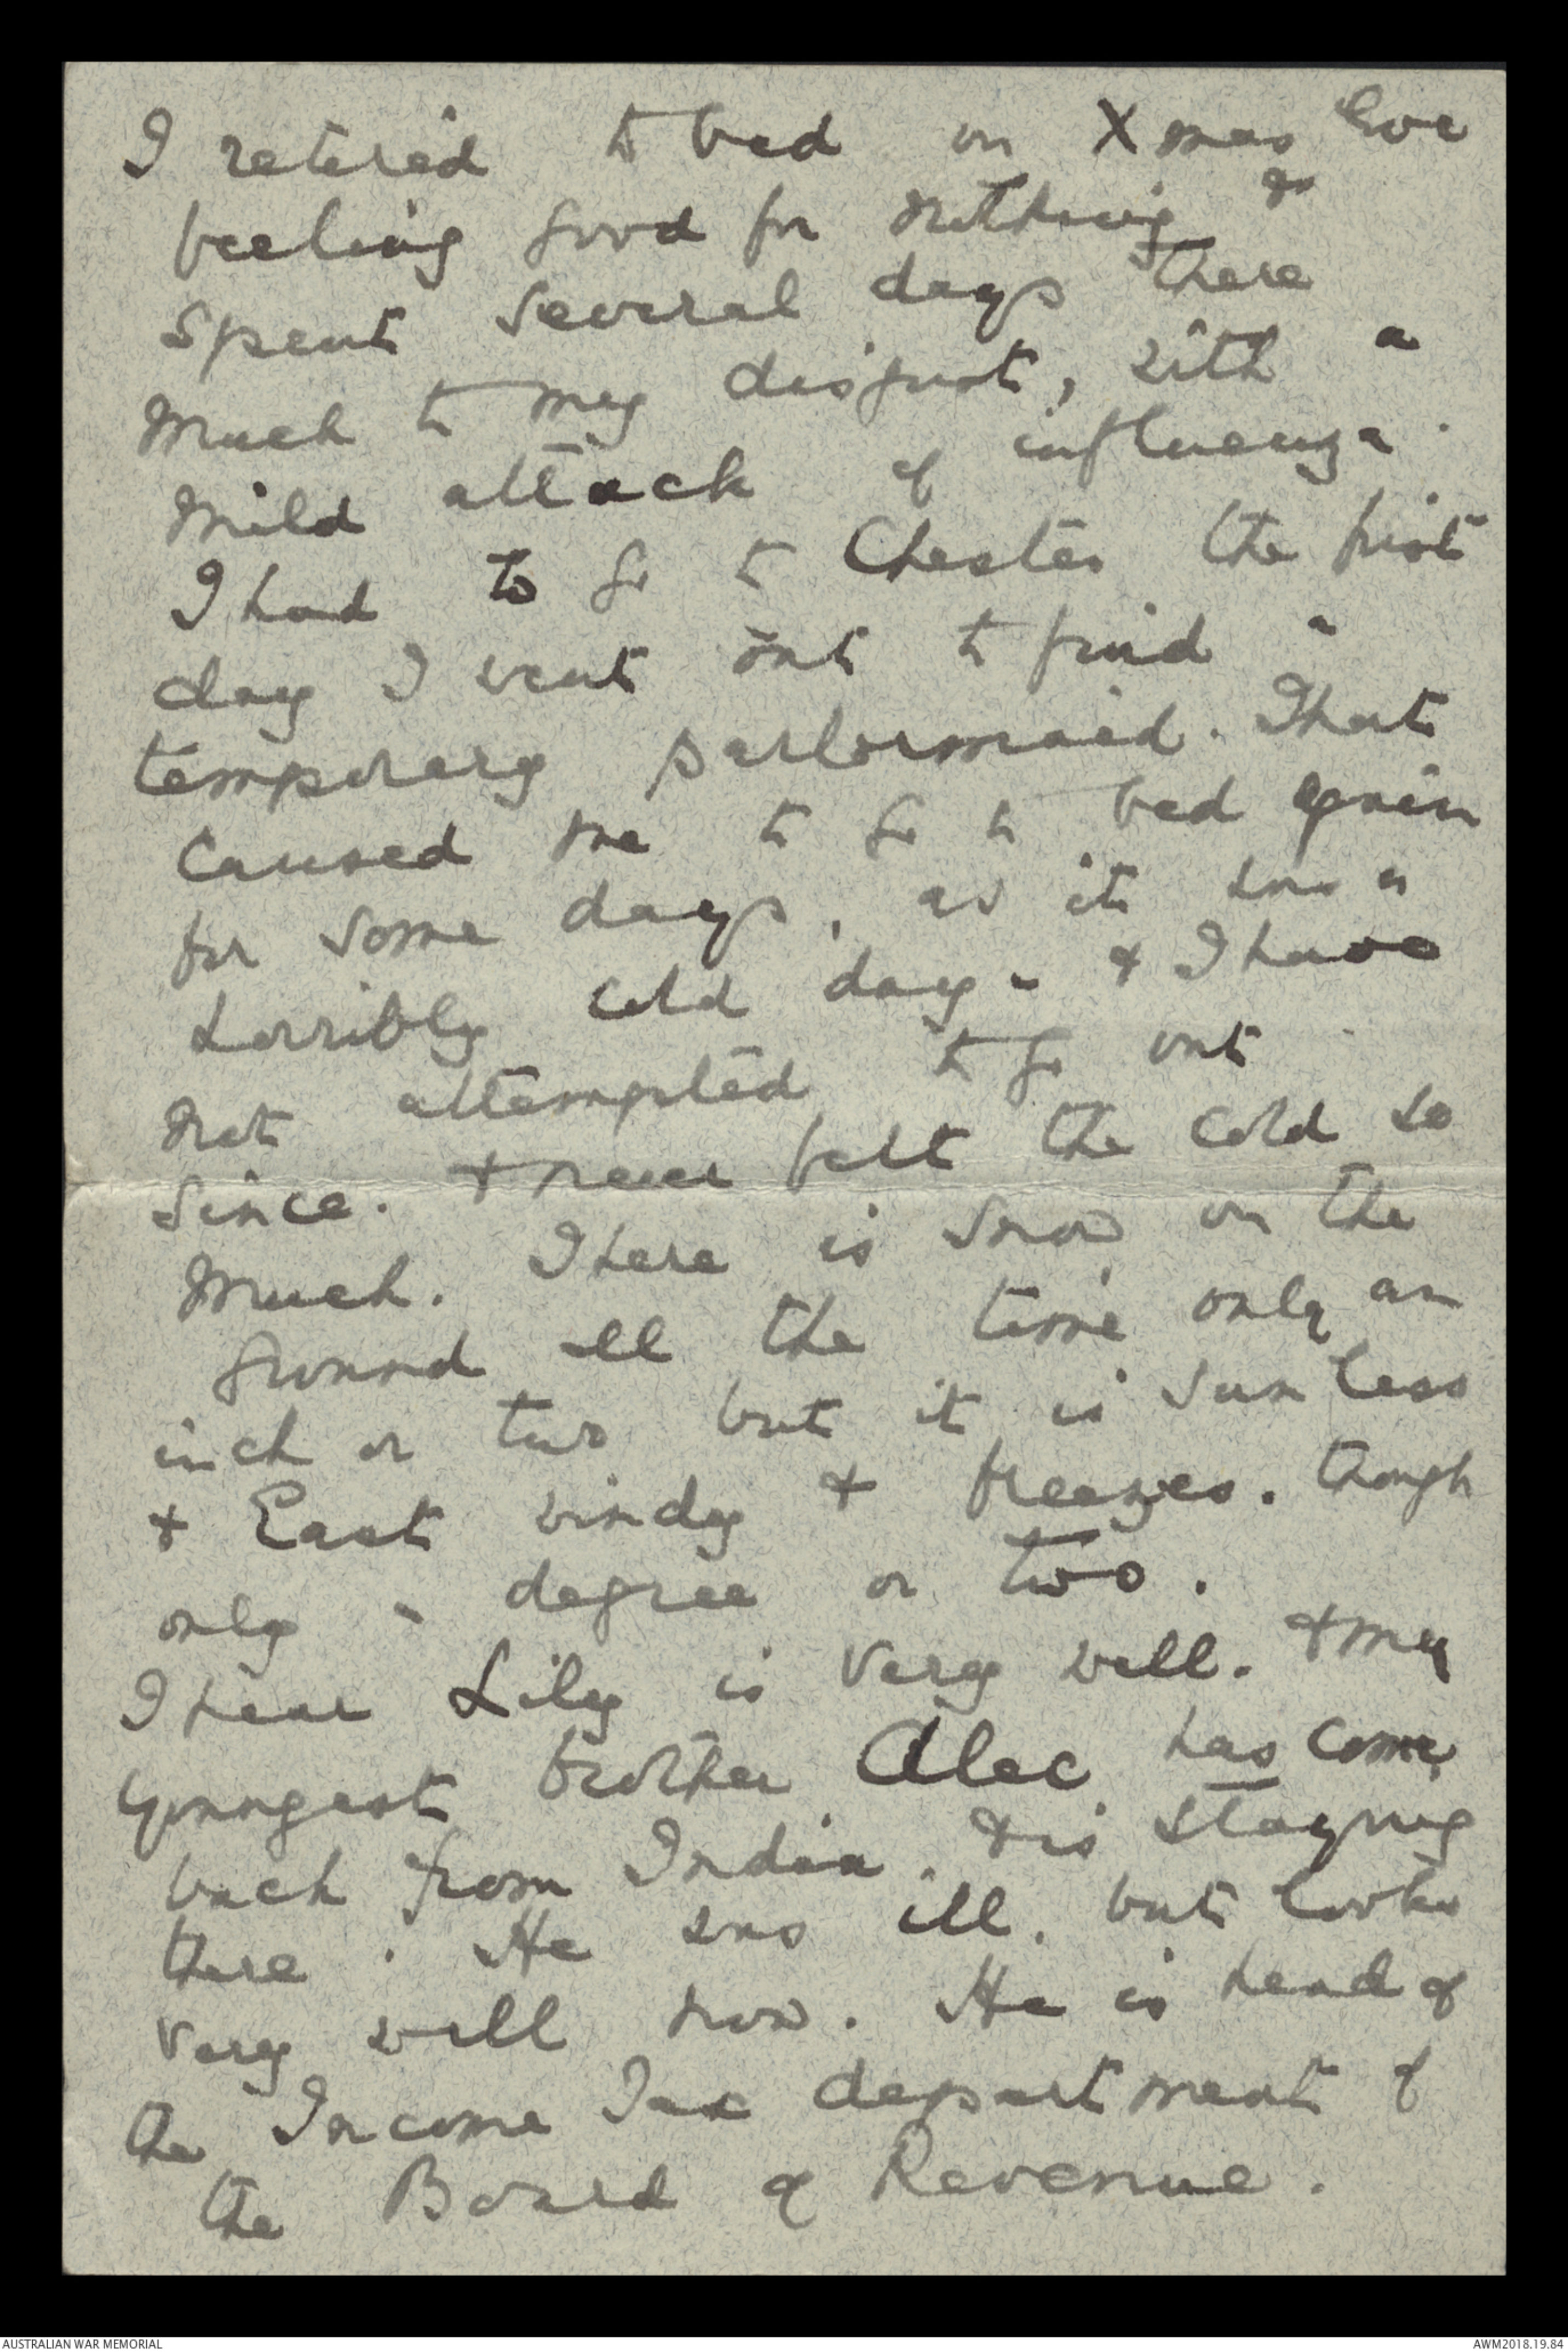 I retired to bed on Xmas Eve
feeling good for nothing &
spent several days there
much to my disgust, with a
mild attack of influenza.
I had to go to Chester the first
day I went out to find a
temporary parlourmaid. That
caused me to go to bed again
for some days, as it was a
horribly cold day - & I have
not attempted to go out
since. & never felt the cold so
much. There is snow on the
ground all the time only an
inch or two but it is sunless
& East windy & freezes. though
only a degree or two.
I hear Lily is very well. & my
youngest brother Alec has come
back from India. & is staying
there. He was ill. but looks
very well now. He is head of
the Income Tax department of
the Board of Revenue.
AUSTRALIAN WAR MEMORIAL
AWM2018.19.84